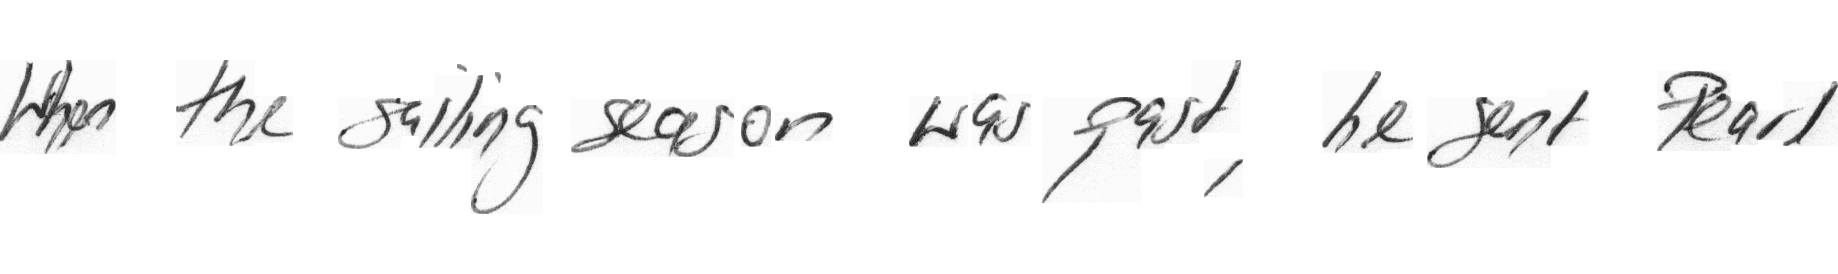 When the sailing season was past, he sent Pearl